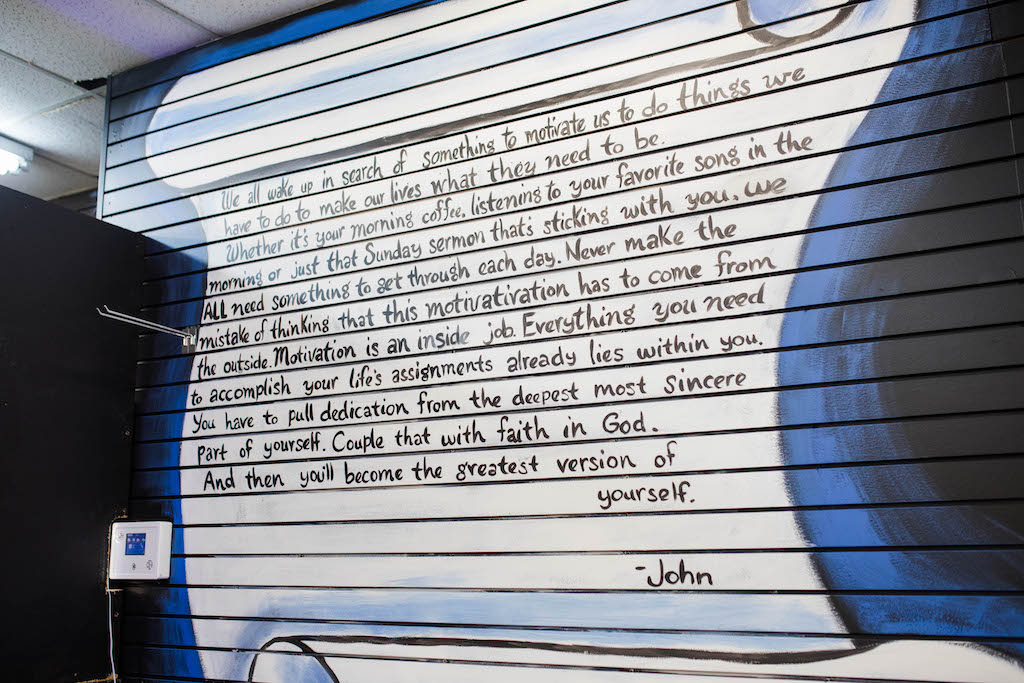 We all wake up in search of something to motivate us to do things we
have to do to make our lives what they need to be.
Whether it's your morning coffee, listening to your favorite song in the
morning or just that Sunday sermon that's sticking with you, we
ALL need something to get through each day. Never make the
mistake of thinking that this motivativation has to come from
the outside. Motivation is an inside job. Everything you need
to accomplish your life's assignments already lies within you.
You have to pull dedication from the deepest most sincere
part of yourself. Couple that with faith in God.
And then you'll become the greatest version of
yourself.
-John